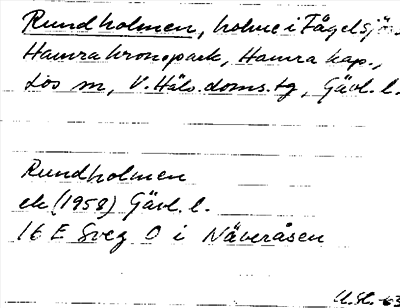 Rundholmen, holme i Fågelsjön.
Hamra kronopark, Hamra kap.,
Los sn, V. Häls. doms. tg, Gävl. l.
Rundholmen
ek (1958) Gävl. l.
16 E Sveg O i Näveråsen
U.St. -63